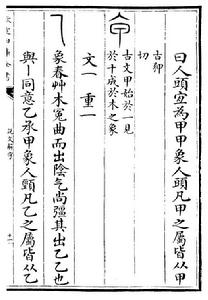 曰人頭宜為甲甲象人頭凡甲之屬皆从甲
古狎
切
古文甲始於一見
於十成於木之象
文一 重一
乙象春艸木冤曲而出陰气尚彊其出乙乙也
與丨同意乙承甲象人頸凡乙之屬皆从乙
說文解字